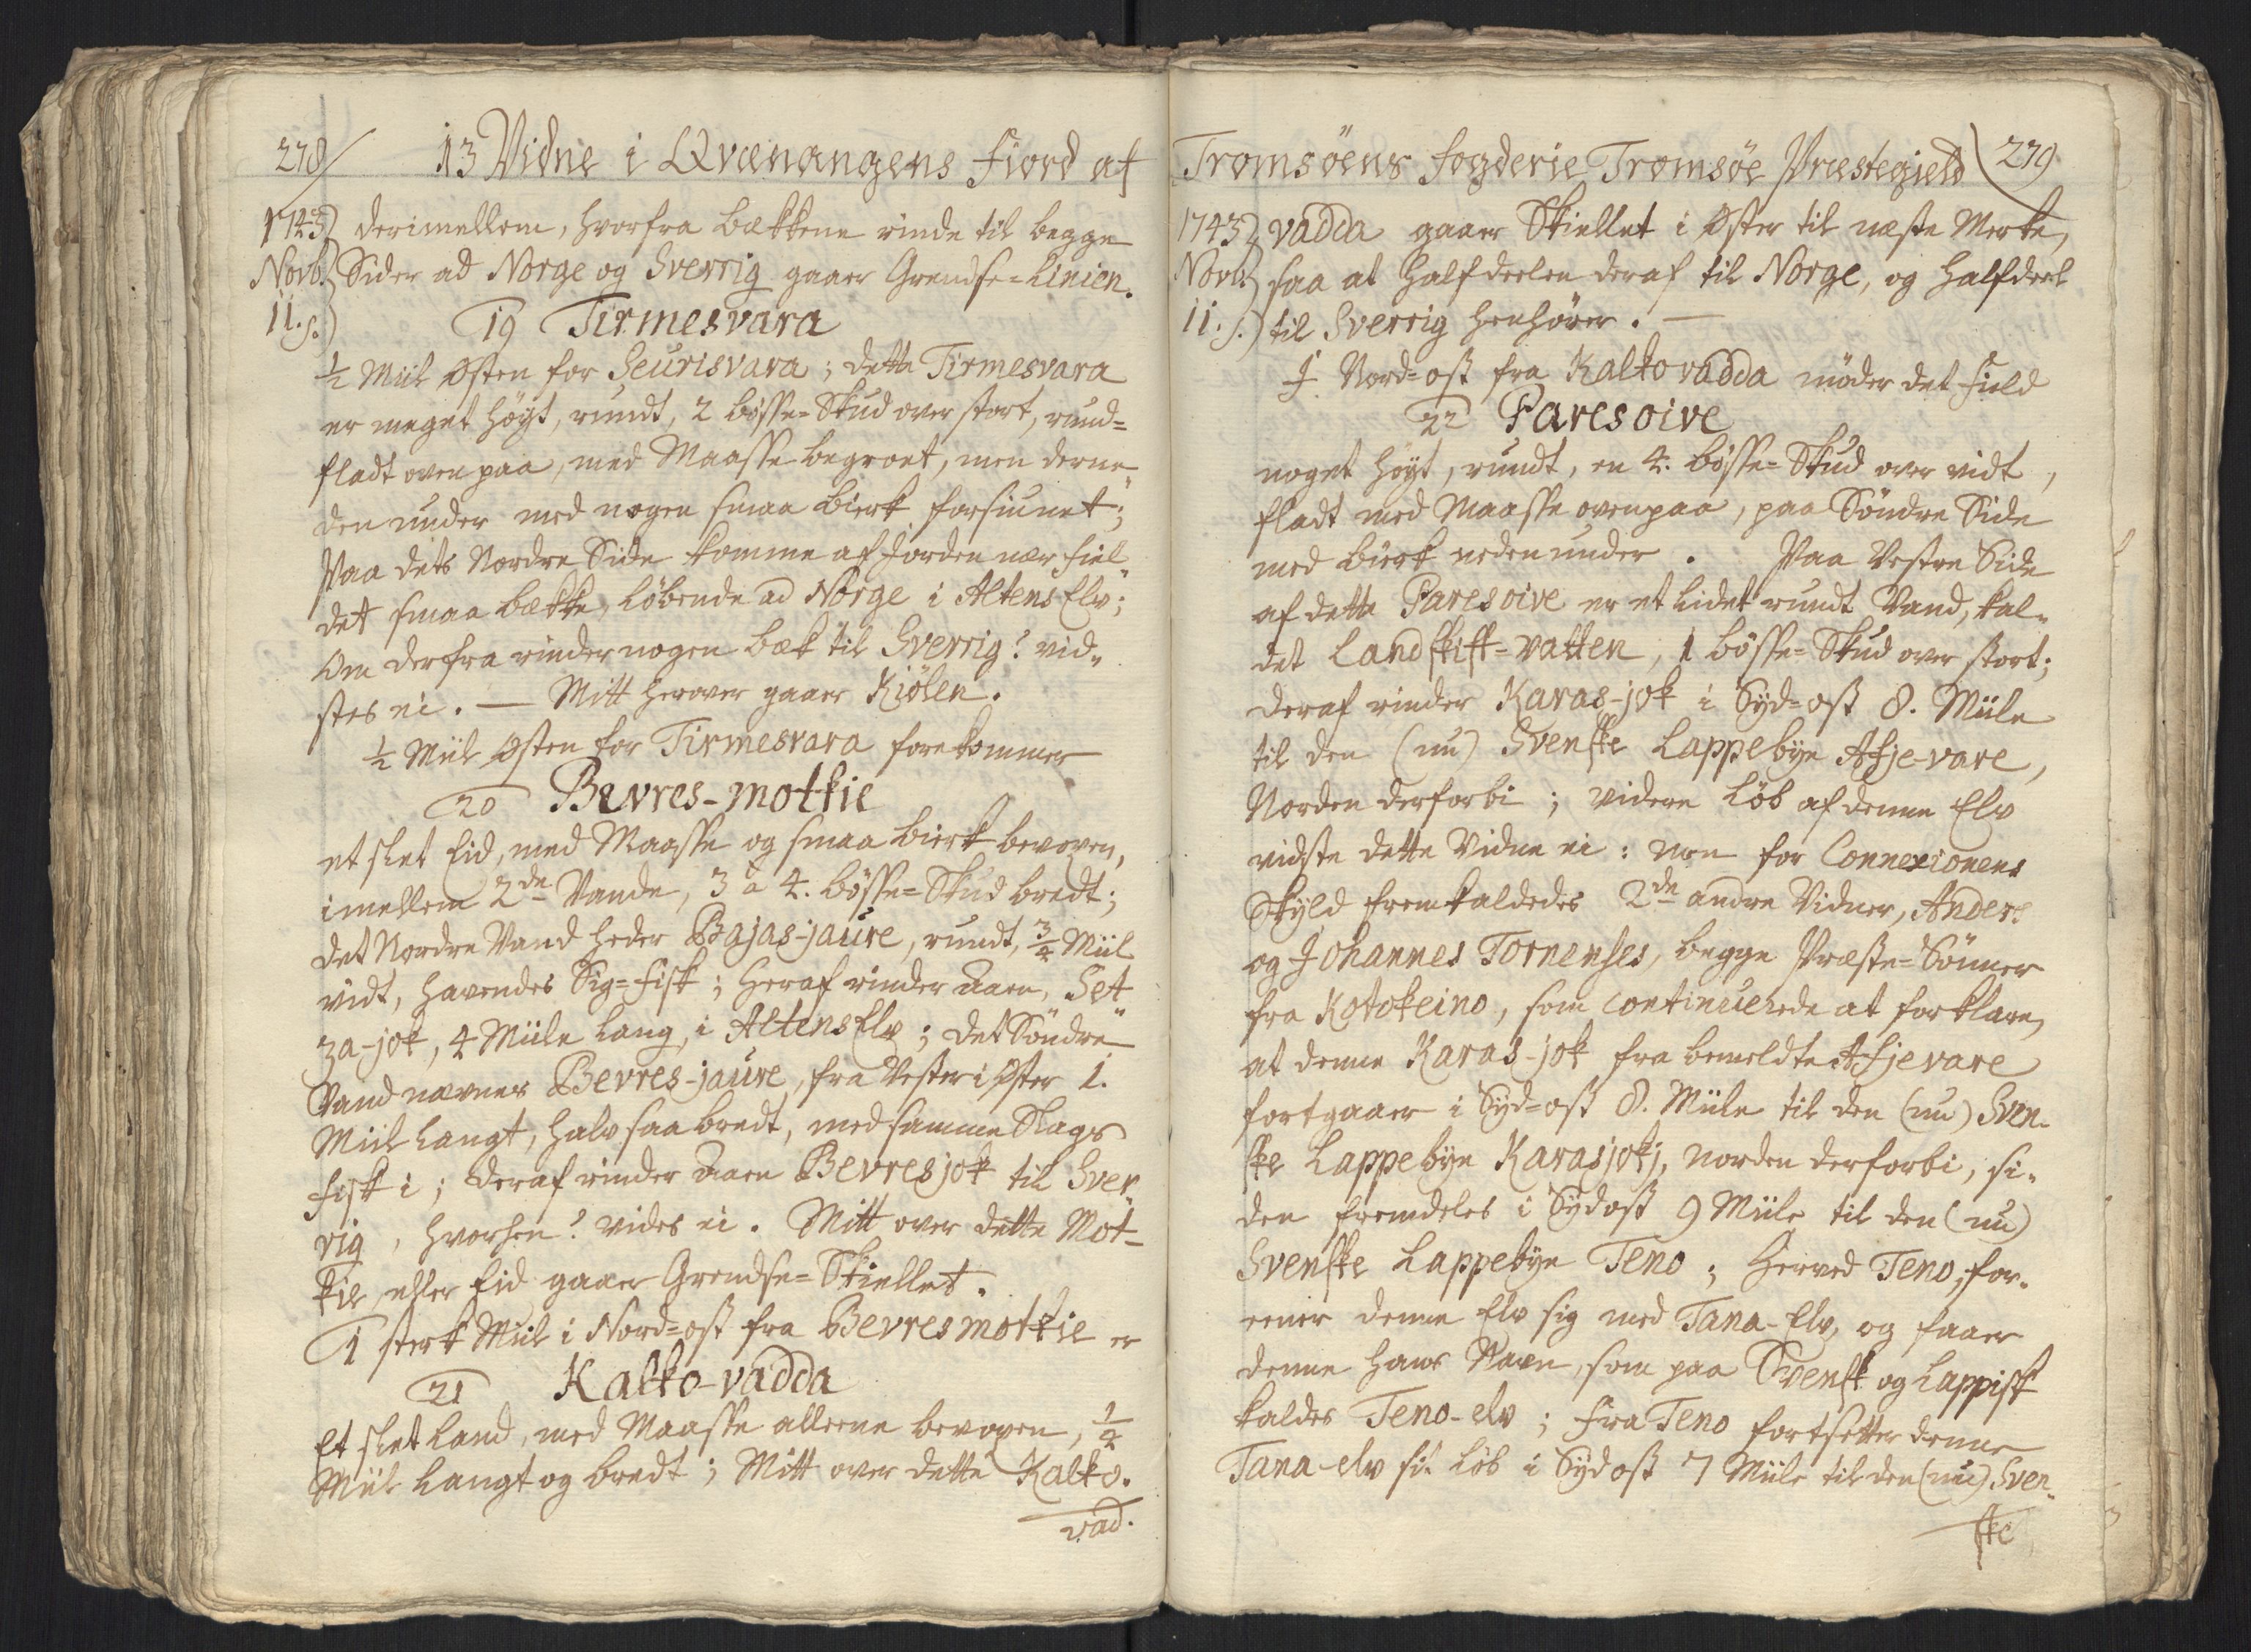 278/ 13 Vidne i Qvænangens Fiord af
1743 derimellem, hvorfra bekkene rinde til begge
Novb. Sider ad Norge og Sverrig gaaer Grendse=Linien.
11. s. 19 Tirmesvara
½ Miil Østen for Seurisvara; dette Tirmesvara
er meget høyt, rundt, 2 bösse=Skud over stort, rund=
fladt oven paa, med Maasse begroet, men derne„
den under med nogen smaa Birk forsiunet;
Paa dets Nordre Side komme af Jorden nær Fiel„
det smaa bekke, løbende ad Norge i Altens Elv;
Om derfra rinder nogen bek til Sverrig? vid„
stes ei. — Mitt herover gaaer Kiölen.
½ Miil Østen for Tirmesvara forekommer
20 Bevres-mottie
et slet Eid, med Maasse og smaa birk bevoxen,
imellem 2de Vande, 3 à 4. bösse=Skud bredt;
det Nordre Vand heder Bajas-jaure, rundt, ¾ Miil
vidt, havendes Sig=Fisk; Heraf rinder Aaen, Set„
za-jok, 4 Miile lang, i Altens Elv; det Söndre
Vand nævnes Bevres-jaure, fra Vester i Øster 1.
Miil langt, halv saa bredt, med samme Slags
Fisk i; deraf rinder Aaen Bevresjok til Sver„
rig, hvorhen? vides ei. Mitt over dette Mot-
kie, eller Eid gaaer Grendse=Skiellet.
1 sterk Miil i Nord=ost fra Bevresmotkie er
21 Kalko-vadda
Et slet Land, med Maasse alleene bevoxen, ¼
Miil langt og bredt; Mitt over dette Kalko.
vad.
Tromsöens Fogderie Tromsöe Præstegield 279.
1743 vadda gaaer Skiellet i Øster til næste Merke,
Novb. saa at Halfdeelen deraf til Norge, og Halfdeel
11. s. til Sverrig henhører. —
I Nord=ost fra Kalkovadda möder det Field
22 Paresoive
noget høyt, rundt, en 4. bösse=Skud over vidt,
fladt med Maasse ovenpaa, paa Söndre Side
med Birk nedenunder. Paa Vestre Side
af dette Paresoive er et lidet rundt Vand, kal„
det Landskift=vatten, 1 bösse=Skud over stort;
deraf rinder Karas-jok i Syd=ost 8. Miile
til den (nu) Svenske Lappebye Afje-vare,
Norden derforbi; videre Löb af denne Elv
vidste dette Vidne ei: Men for Connexionens
Skyld fremkaldedes 2de andre Vidner, Anders
og Johannes Tornenses, begge Præste=Sönner
fra Kotokeino, som continuerede at forklare,
at denne Karas-jok fra bemeldte Afjevare
fortgaaer i Syd=ost 8. Miile til den (nu) Sven„
ske Lappebye Karasjokj, Norden derforbi, si„
den fremdeles i Sydost 9 Miile til den (nu)
Svenske Lappebye Teno; Herved Teno, for„
eener denne Elv sig med Tana-Elv, og faaer
denne hans Navn, som paa Svensk og Lappisk
kaldes Teno-elv; Fra Teno fortsetter denne
Tana-elv sit Löb i Sydost 7 Miile til den (nu) Sven„
ske